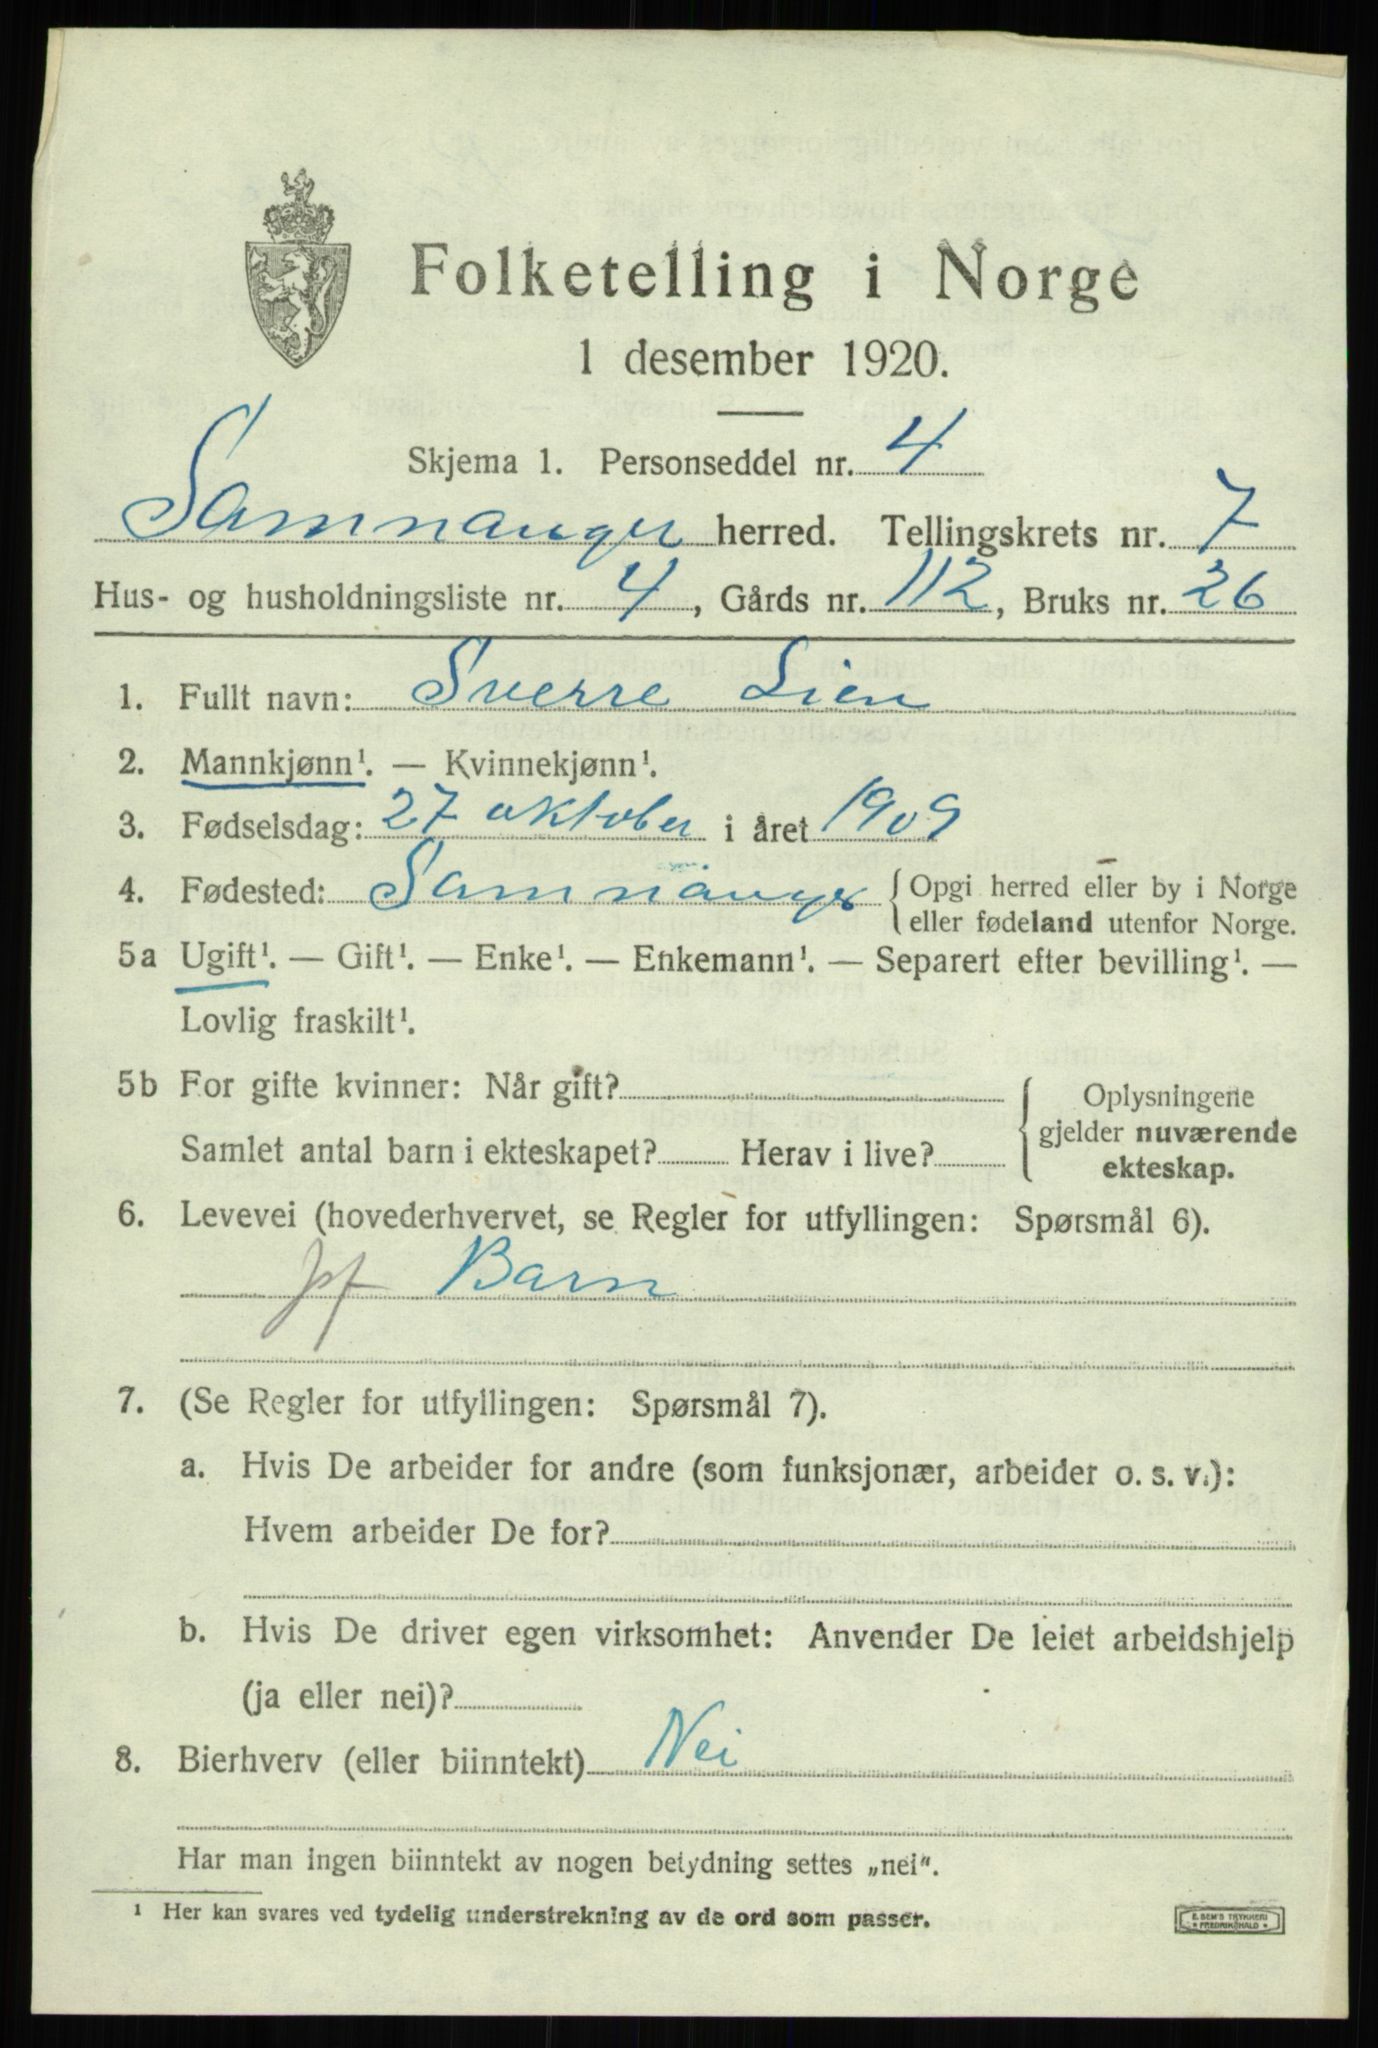 Folketelling i Norge
1 desember 1920.
Skjema 1. Personseddel nr. 4
Samnanger herred. Tellingskrets nr. 7
Hus- og husholdningsliste nr. 4, Gårds nr. 112, Bruks nr. 26
1. Fullt navn: Sverre Lien
2. Mannkjønn¹. — Kvinnekjønn¹.
3. Fødselsdag: 27 oktober i året 1909
4. Fødested: Samnanger { Opgi herred eller by i Norge
eller fødeland utenfor Norge.
5a Ugift¹. — Gift¹. — Enke¹. — Enkemann¹. — Separert efter bevilling¹. —
Lovlig fraskilt¹.
5b For gifte kvinner: Når gift?
Samlet antal barn i ekteskapet? Herav i live?
{ Oplysningene
gjelder nuværende
ekteskap.
6. Levevei (hovederhvervet, se Regler for utfyllingen: Spørsmål 6).
Barn
7. (Se Regler for utfyllingen: Spørsmål 7).
a. Hvis De arbeider for andre (som funksjonær, arbeider o. s. v.):
Hvem arbeider De for?
b. Hvis De driver egen virksomhet: Anvender De leiet arbeidshjelp
(ja eller nei)?
8. Bierhverv (eller biinntekt) Nei
Har man ingen biinntekt av nogen betydning settes „nei".
¹ Her kan svares ved tydelig understrekning av de ord som passer.
E. SEM'S TRYKKERI
FREDRIKSHALD